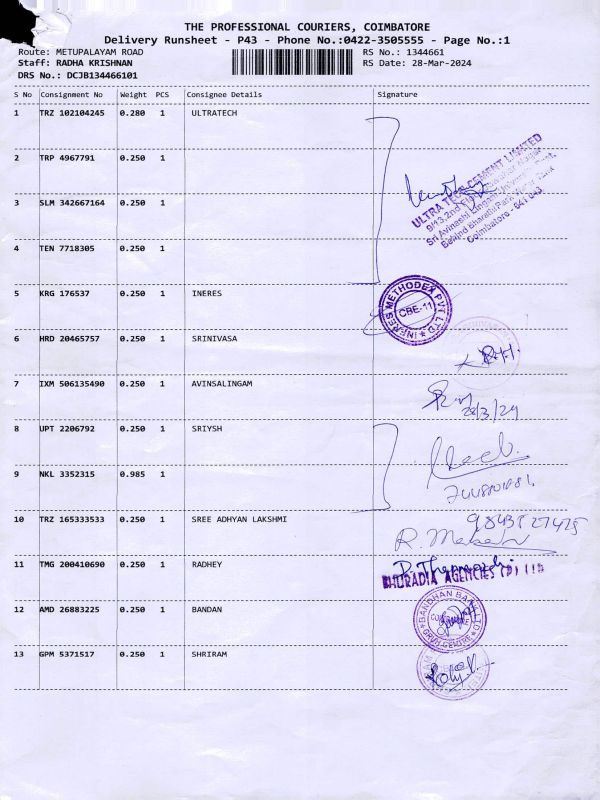 THE PROFESSIONAL COURIERS, COIMBATORE
Delivery Runsheet - P43 - Phone No.:0422-3505555 - Page No.:1
Route: METUPALAYAM ROAD RS No.: 1344661
Staff: RADHA KRISHNAN RS Date: 28-Mar-2024
DRS No.: DCJB134466101
S No Consignment No Weight PCS Consignee Details Signature
1 TRZ 102104245 0.280 1 ULTRATECH
2 TRP 4967791 0.250 1
ULTRA TECH CEMENT LIMITED
3 SLM 342667164 0.250 1
Coimbatore - 641 043
4 TEN 7718305 0.250 1
5 KRG 176537 0.250 1 INERES
INERES METHODEX PVT LTD
CBE-11
6 HRD 20465757 0.250 1 SRINIVASA
7 IXM 506135490 0.250 1 AVINSALINGAM
28/3/24
8 UPT 2206792 0.250 1 SRIYSH
9 NKL 3352315 0.985 1
10 TRZ 165333533 0.250 1 SREE ADHYAN LAKSHMI
11 TMG 200410690 0.250 1 RADHEY
BHURADIA AGENCIES (P) LTD
12 AMD 26883225 0.250 1 BANDAN
BANDHAN BANK LTD
13 GPM 5371517 0.250 1 SHRIRAM